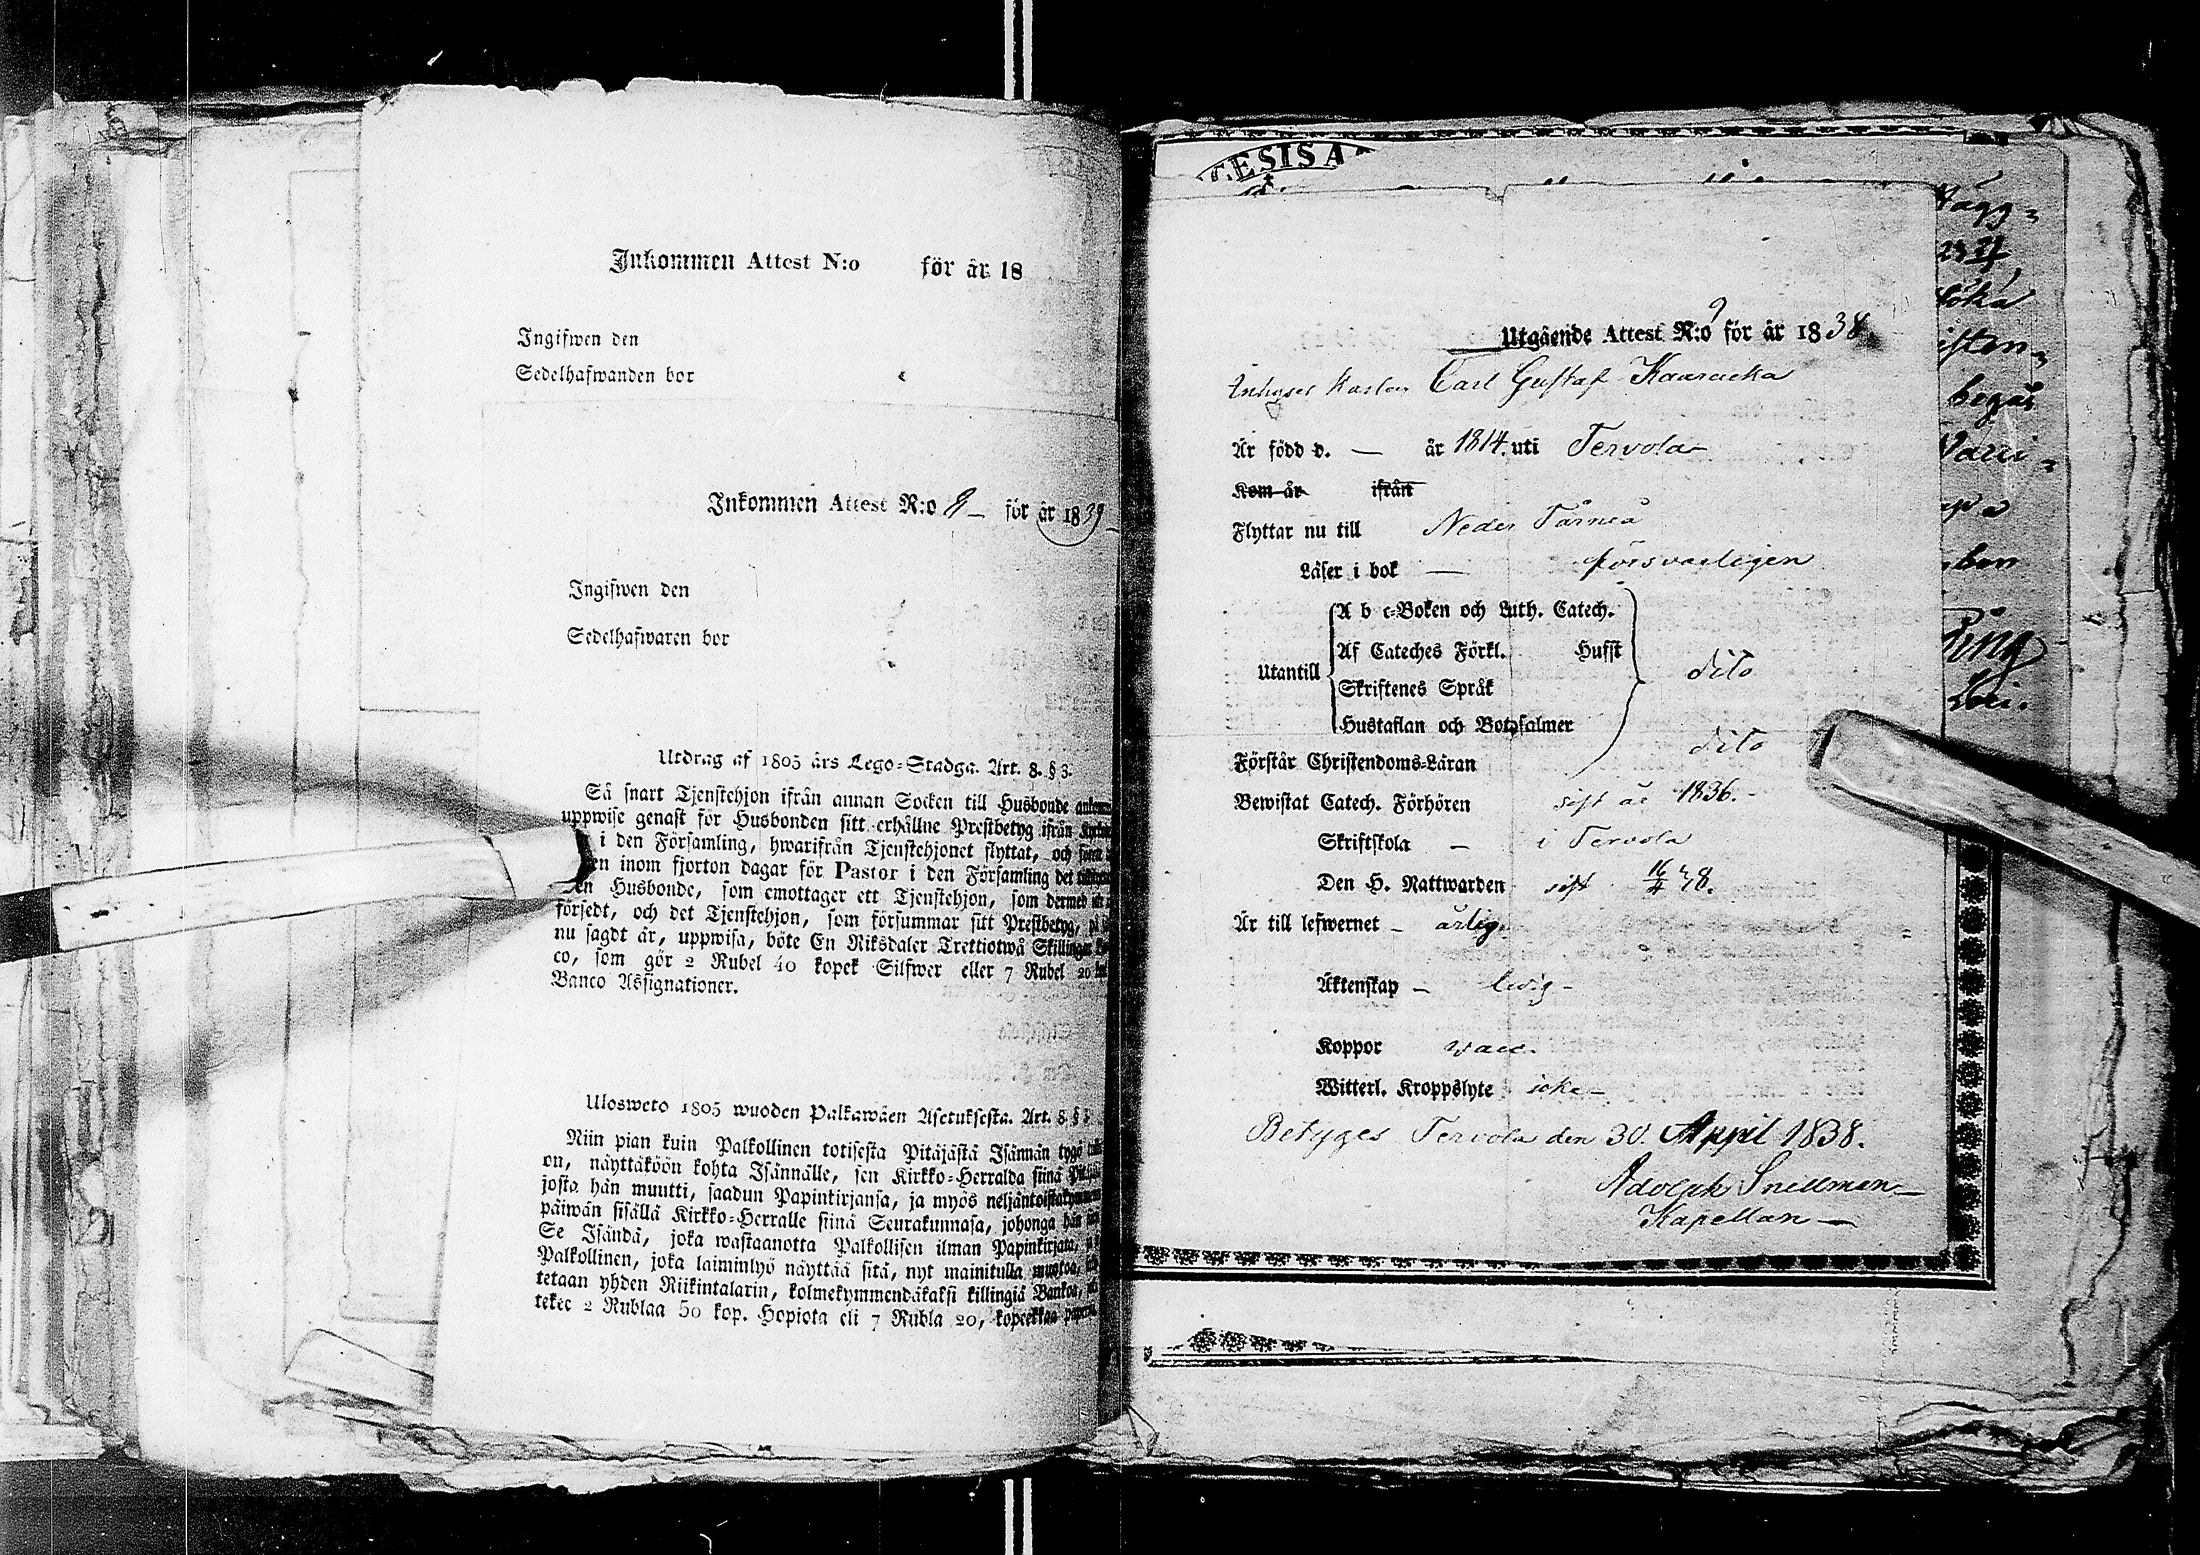 Inkommen Attest N:o för år 18
Ingifwen den
Sedelhafwanden bor
Inkommen Attest N:o 9 för år 1839
Ingifwen den
Sedelhafwaren bor
Utdrag af 1805 års Lego-Stadga. Art. 8. § 3.
Så snart Tjenstehjon ifrån annan Socken till Husbonde
uppwise genast för Husbonden sitt erhållne Prestbetyg ifrån
i den Församling, hwarifrån Tjenstehjonet flyttat, och
inom fjorton dagar för Pastor i den Församling det
Husbonde, som emottager ett Tjenstehjon, som dermed
försedt, och det Tjenstehjon, som försummar sitt Prestbetyg, på
nu sagdt är, uppwisa, böte En Riksdaler Trettiotwå Skillingar
co, som gör 2 Rubel 40 kopek Silfwer eller 7 Rubel 20
Banco Assignationer.
Ulosweto 1805 wuoden Palkawäen Asetuksesta. Art. 8. §
Niin pian kuin Palkollinen toisesta Pitäjästä Isännän tygö
on, näyttäköön kohta Isännälle, sen Kirkko-Herralda siinä
josta hän muutti, saadun Papinkirjansa, ja myös
päiwän sisällä Kirkko-Herralle siinä Seurakunnasa, johonga hän
Se Isändä, joka wastaanotta Palkollisen ilman Papinkirjata,
Palkollinen, joka laiminlyö näyttää sitä, nyt mainitulla muotoa,
tetaan yhden Riikintalarin, kolmekymmendäkaksi killingiä Bankoa,
tekee 2 Rublaa 50 kop. Hopiota eli 7 Rubla 20, kopeekkaa
CESISA
Utgående Attest N:o 9 för år 1838.
Carl Gustaf Kaaracka
Är född d. — år 1814. uti Tervola
Kom år ifrån
Flyttar nu till Neder Tårneå
Läser i bok — försvarligen
A b c-Boken och Luth. Catech.
Af Cateches Förkl. Hufst
Utantill dito
Skriftenes Språk
Hustaflan och Botpsalmer
Förstår Christendoms-Läran dito
Bewistat Catech. Förhören sist år 1836. -
Skriftskola - i Tervola
Den H. Nattwarden sist 16/4 38.
Är till lefwernet - ärlig.
Äktenskap - ledig -
Koppor vacc.
Witterl. Kroppslyte icke -
Betyges Tervola den 30. April 1838.
Adolph Snellman
Kapellan